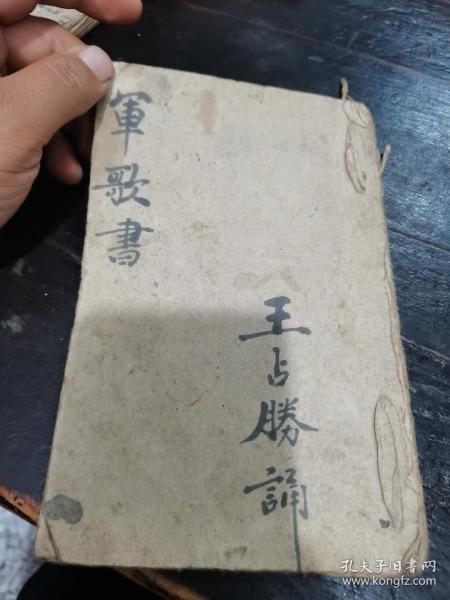 軍歌書
王占勝誦
孔夫子旧书网
www.kongfz.com